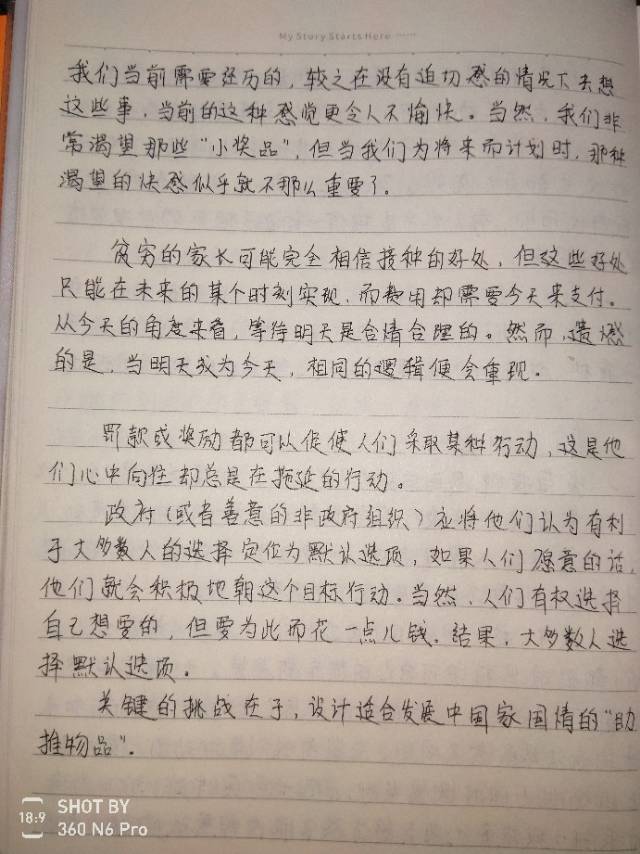 My Story Starts Here ······
我们当前需要经历的，较之在没有迫切感的情况下去想
这些事，当前的这种感觉更令人不愉快。当然，我们非
常渴望那些“小奖品”，但当我们为将来而计划时，那种
渴望的快感似乎就不那么重要了。
贫穷的家长可能完全相信接种的好处，但这些好处
只能在未来的某个时刻实现，而费用却需要今天来支付。
从今天的角度来看，等待明天是合情合理的。然而，遗憾
的是，当明天成为今天，相同的逻辑便会重现。
罚款或奖励都可以促使人们采取某种行动，这是他
们心中向往却总是在拖延的行动。
政府（或者善意的非政府组织）应将他们认为有利
于大多数人的选择定位为默认选项，如果人们愿意的话，
他们就会积极地朝这个目标行动。当然，人们有权选择
自己想要的，但要为此而花一点儿钱。结果，大多数人选
择默认选项。
关键的挑战在于，设计适合发展中国家国情的“助
推物品”。
18:9
SHOT BY
360 N6 Pro